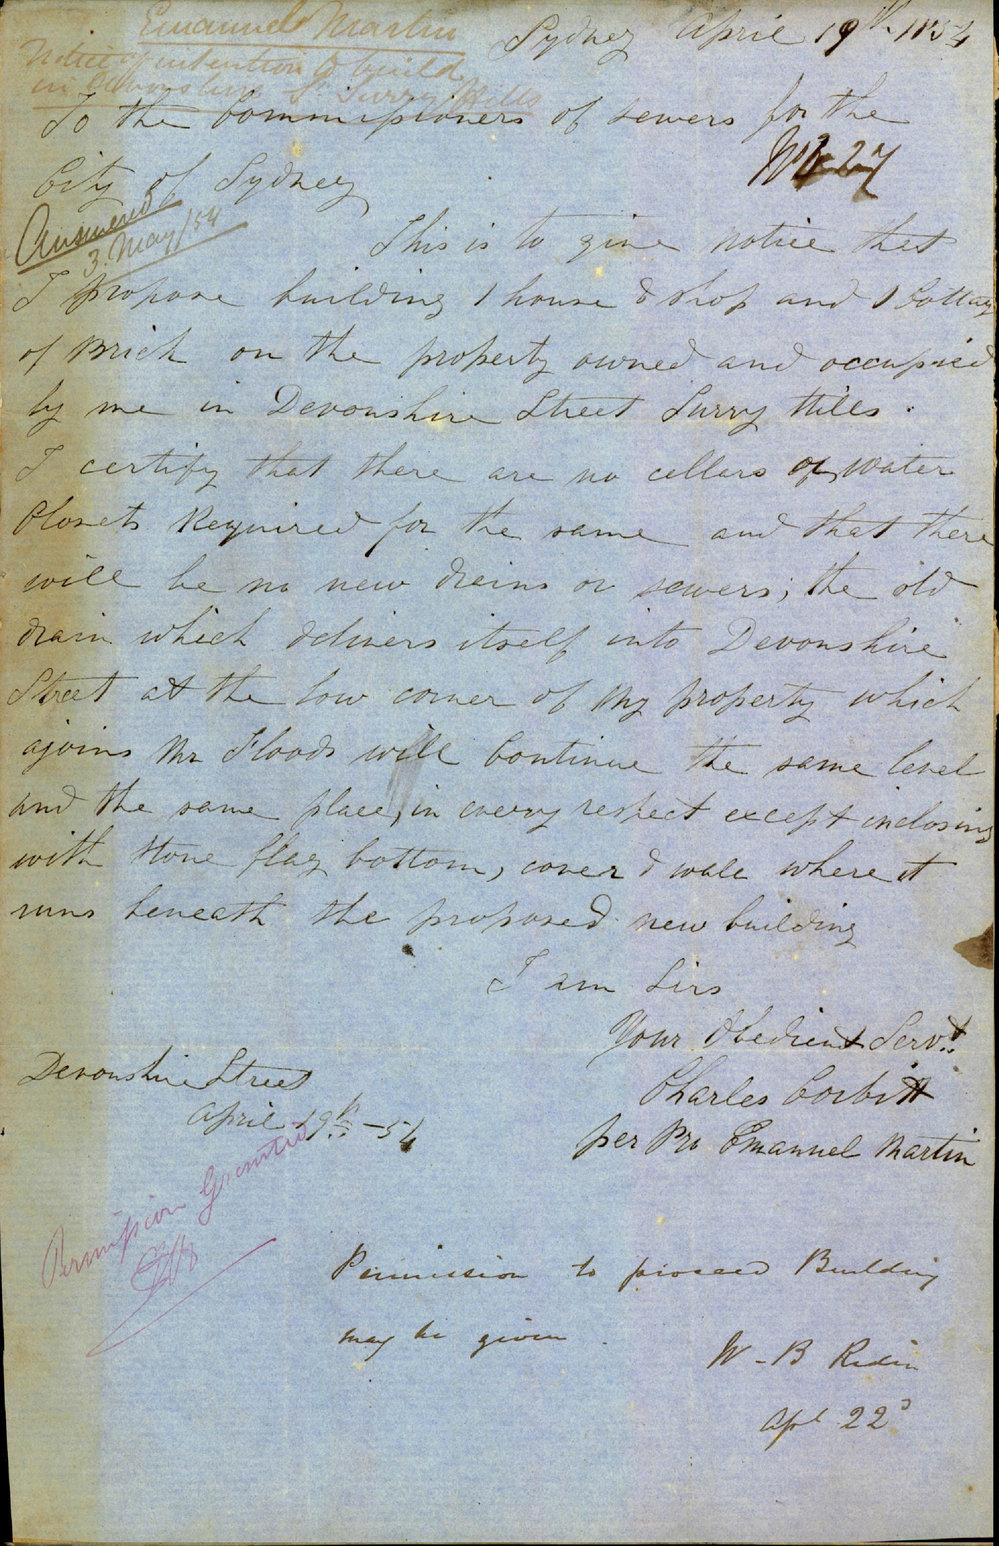 Emanuel Martin
Notice of intention to build
in Devonshire St Surry Hills
Sydney April 19th 1854
To the Commissioners of sewers for the
City of Sydney
No 27
Answered
3. May/54
This is to give notice that
I propose building 1 house & shop and 1 Cottage
of Brick on the property owned and occupied
by me in Devonshire Street Surry Hills.
I certify that there are no cellars or water
Closets Required for the same and that there
will be no new drains or sewers; the old
drain which delivers itself into Devonshire
Street at the low corner of my property which
ajoins Mr Floods will Continue the same level
and the same place, in every respect except inclosing
with stone flag bottom, cover & wall where it
runs beneath the proposed new building
I am Sirs
Your Obedient Servt.
Charles Corbitt
per Pro Emanuel Martin
Devonshire Street
April 19th -54
Permission Granted
Permission to proceed Building
may be given.
W-B
Apl 22d